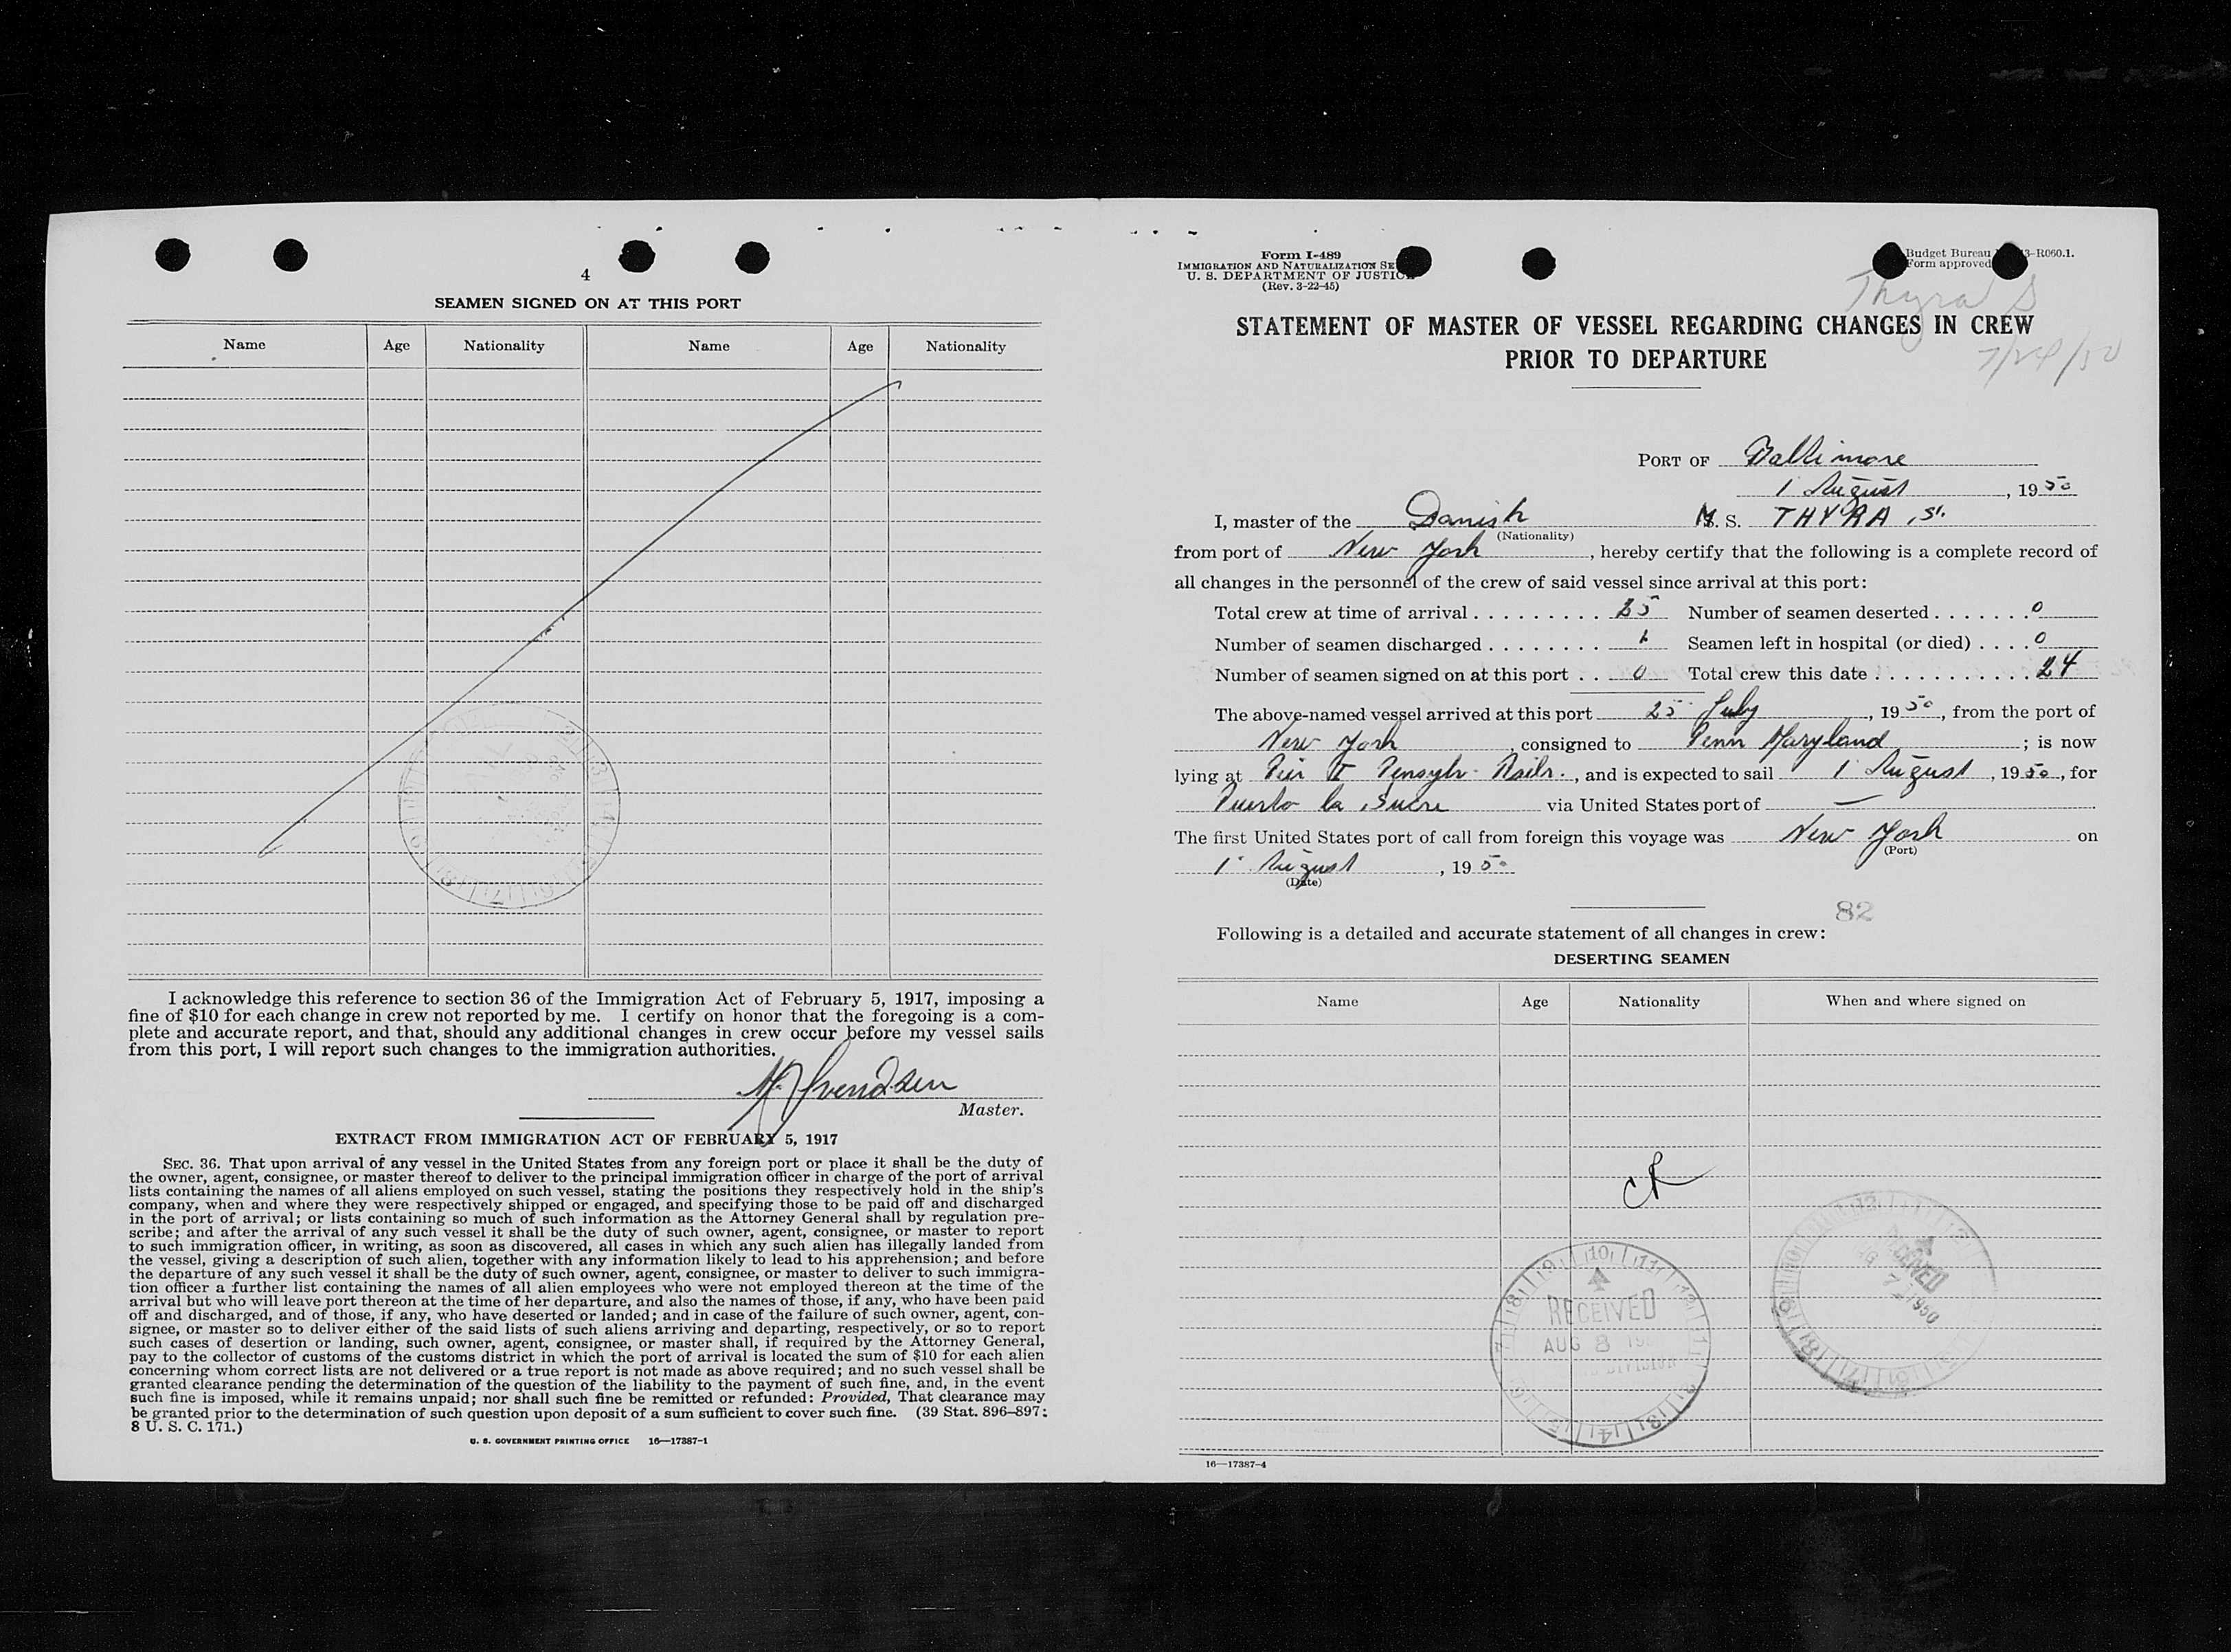 4
SEAMEN SIGNED ON AT THIS PORT
Name Age Nationality Name Age Nationality
I acknowledge this reference to section 36 of the Immigration Act of February 5, 1917, imposing a
fine of $10 for each change in crew not reported by me. I certify on honor that the foregoing is a com-
plete and accurate report, and that, should any additional changes in crew occur before my vessel sails
from this port, I will report such changes to the immigration authorities.
Svendsen
Master.
EXTRACT FROM IMMIGRATION ACT OF FEBRUARY 5, 1917
SEC. 36. That upon arrival of any vessel in the United States from any foreign port or place it shall be the duty of
the owner, agent, consignee, or master thereof to deliver to the principal immigration officer in charge of the port of arrival
lists containing the names of all aliens employed on such vessel, stating the positions they respectively hold in the ship's
company, when and where they were respectively shipped or engaged, and specifying those to be paid off and discharged
in the port of arrival; or lists containing so much of such information as the Attorney General shall by regulation pre-
scribe; and after the arrival of any such vessel it shall be the duty of such owner, agent, consignee, or master to report
to such immigration officer, in writing, as soon as discovered, all cases in which any such alien has illegally landed from
the vessel, giving a description of such alien, together with any information likely to lead to his apprehension; and before
the departure of any such vessel it shall be the duty of such owner, agent, consignee, or master to deliver to such immigra-
tion officer a further list containing the names of all alien employees who were not employed thereon at the time of the
arrival but who will leave port thereon at the time of her departure, and also the names of those, if any, who have been paid
off and discharged, and of those, if any, who have deserted or landed; and in case of the failure of such owner, agent, con-
signee, or master so to deliver either of the said lists of such aliens arriving and departing, respectively, or so to report
such cases of desertion or landing, such owner, agent, consignee, or master shall, if required by the Attorney General,
pay to the collector of customs of the customs district in which the port of arrival is located the sum of $10 for each alien
concerning whom correct lists are not delivered or a true report is not made as above required; and no such vessel shall be
granted clearance pending the determination of the question of the liability to the payment of such fine, and, in the event
such fine is imposed, while it remains unpaid; nor shall such fine be remitted or refunded: Provided, That clearance may
be granted prior to the determination of such question upon deposit of a sum sufficient to cover such fine. (39 Stat. 896–897;
8 U. S. C. 171.)
U. S. GOVERNMENT PRINTING OFFICE 16—17387-1
Form I-489
IMMIGRATION AND NATURALIZATION SE
U. S. DEPARTMENT OF JUSTIC
(Rev. 3-22-45)
Budget Bureau 3-R060.1.
Form approved
Thyra S
7/24/50
STATEMENT OF MASTER OF VESSEL REGARDING CHANGES IN CREW
PRIOR TO DEPARTURE
PORT OF Baltimore
1 August, 1950
I, master of the Danish M. S. THYRA S.
(Nationality)
from port of New York, hereby certify that the following is a complete record of
all changes in the personnel of the crew of said vessel since arrival at this port:
Total crew at time of arrival . . . . . . . . . 25 Number of seamen deserted . . . . . . . 0
Number of seamen discharged . . . . . . . . 1 Seamen left in hospital (or died) . . . . 0
Number of seamen signed on at this port . . 0 Total crew this date . . . . . . . . . . . . 24
The above-named vessel arrived at this port 25 July, 1950, from the port of
New York, consigned to Penn Maryland; is now
lying at Pier II Pensylv. Railr., and is expected to sail 1 August, 1950, for
Puerto la Sucre via United States port of —
The first United States port of call from foreign this voyage was New York on
(Port)
1 August, 1950
(Date)
82
Following is a detailed and accurate statement of all changes in crew:
DESERTING SEAMEN
Name Age Nationality When and where signed on
RECEIVED
AUG 8
DIVISION
RECEIVED
AUG 7 1950
16—17387-4